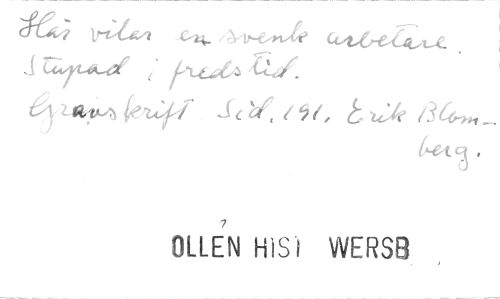 Här vilar en svensk arbetare.
Stupad i fredstid.
Gravskrift. Sid. 191. Erik Blom-
berg.
OLLÉN HIST WERSB